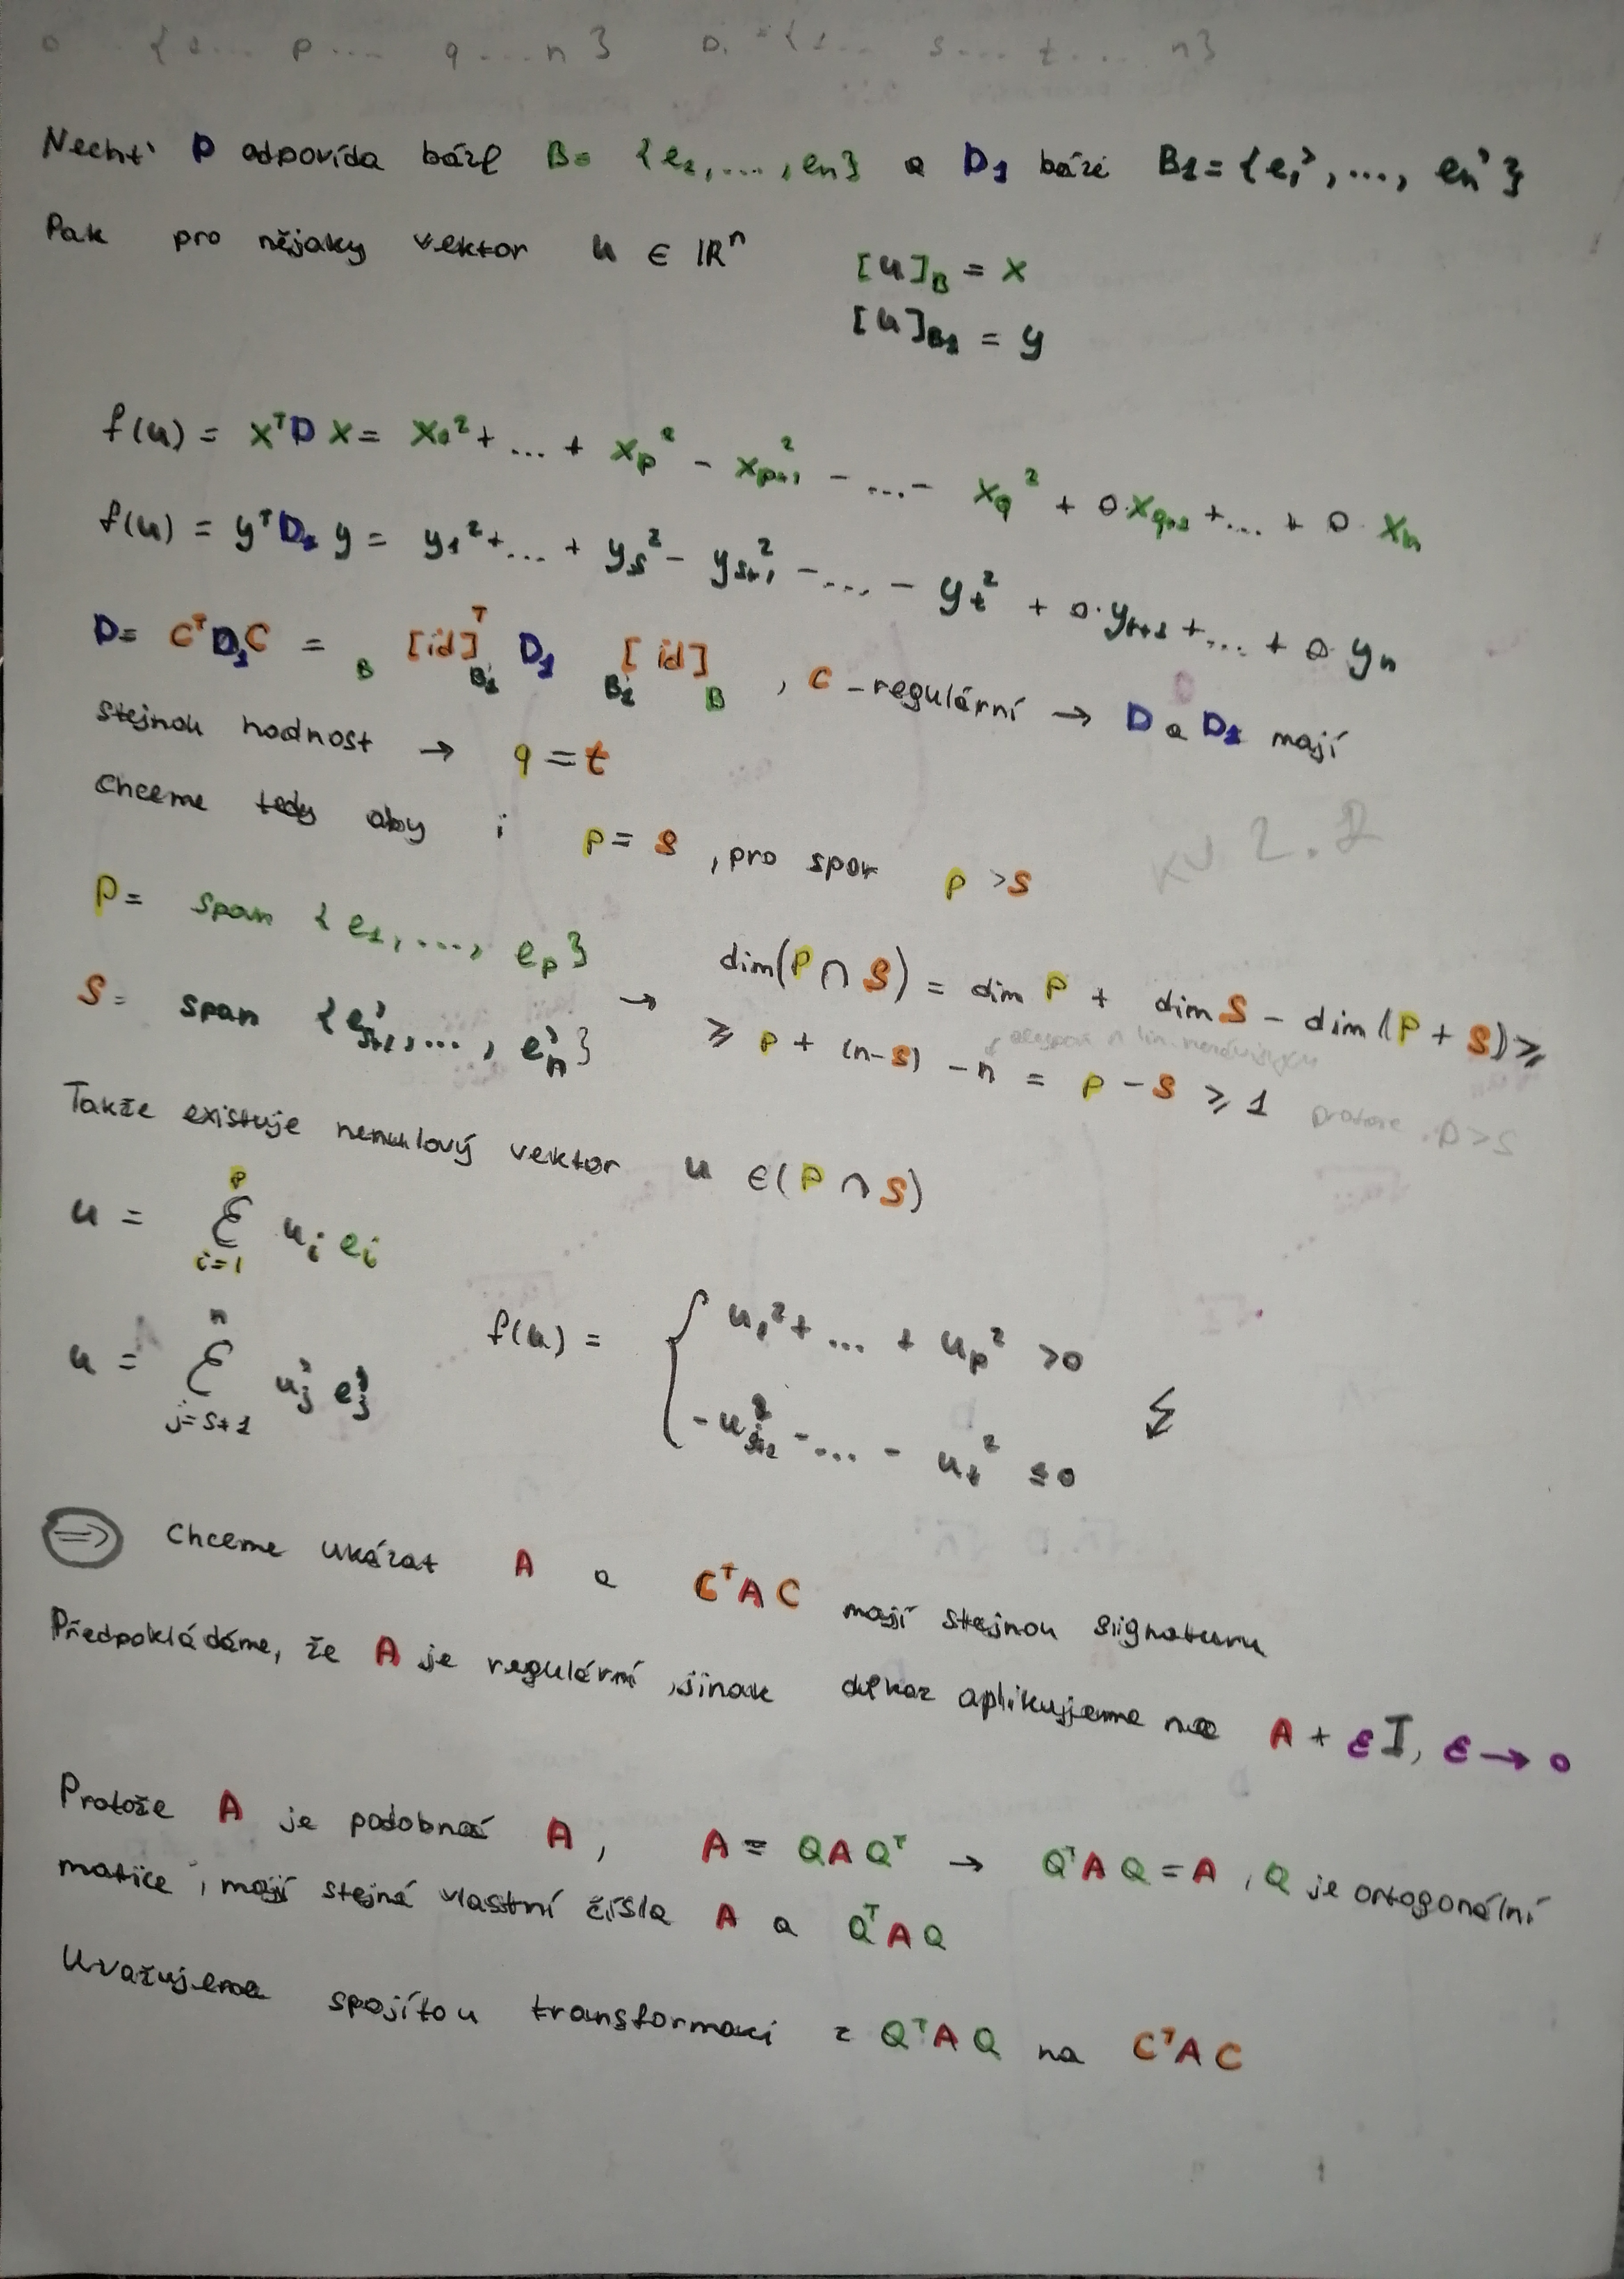 {1... p... q...n} D₁={1... s... t... n}
Nechť D odpovída bázi B= {e₁,...,en} a D₁ bázi B₁={e₁',..., en'}
Pak pro nějaky vektor u ∈ ℝⁿ
[u]_B = x
[u]_B₁ = y
f(u) = xᵀD x= x₁²+ ... + xp² - xp+1² - ...- xq² + 0·xq+1 +... + 0· xn
f(u) = yᵀD₁ y = y₁²+... + ys² - ys+1² -... - yt² + 0·yt+1 +... + 0 yn
D= CᵀD₁C = B[id]ᵀB₁ D₁ B₁[id]B , C -regulární → D a D₁ mají
stejnou hodnost → q = t
Chceme tedy aby i p = s , pro spor p > s
P= span {e₁,..., ep}
S= span {e's+1,..., e'n} → dim(P∩S) = dim P + dim S - dim(P+S) ≥
≥ p + (n-s) - n = p - s ≥ 1 protože p>s
Takže existuje nenulový vektor u ∈(P∩S)
u = Σ i=1 p ui ei
u = Σ j=s+1 n u'j e'j
f(u) = { u₁²+ ... + up² >0
-us+1² -... - ut² ≤0
⇒ Chceme ukázat A a CᵀAC mají stejnou signaturu
Předpokládáme, že A je regulární, jinak důkaz aplikujeme na A + εI, ε → 0
Protože A je podobná A, A = QAQᵀ → QᵀAQ = A , Q je ortogonální
matice, mají stejná vlastní čísla A a QᵀAQ
Uvažujeme spojítou transformaci z QᵀAQ na CᵀAC